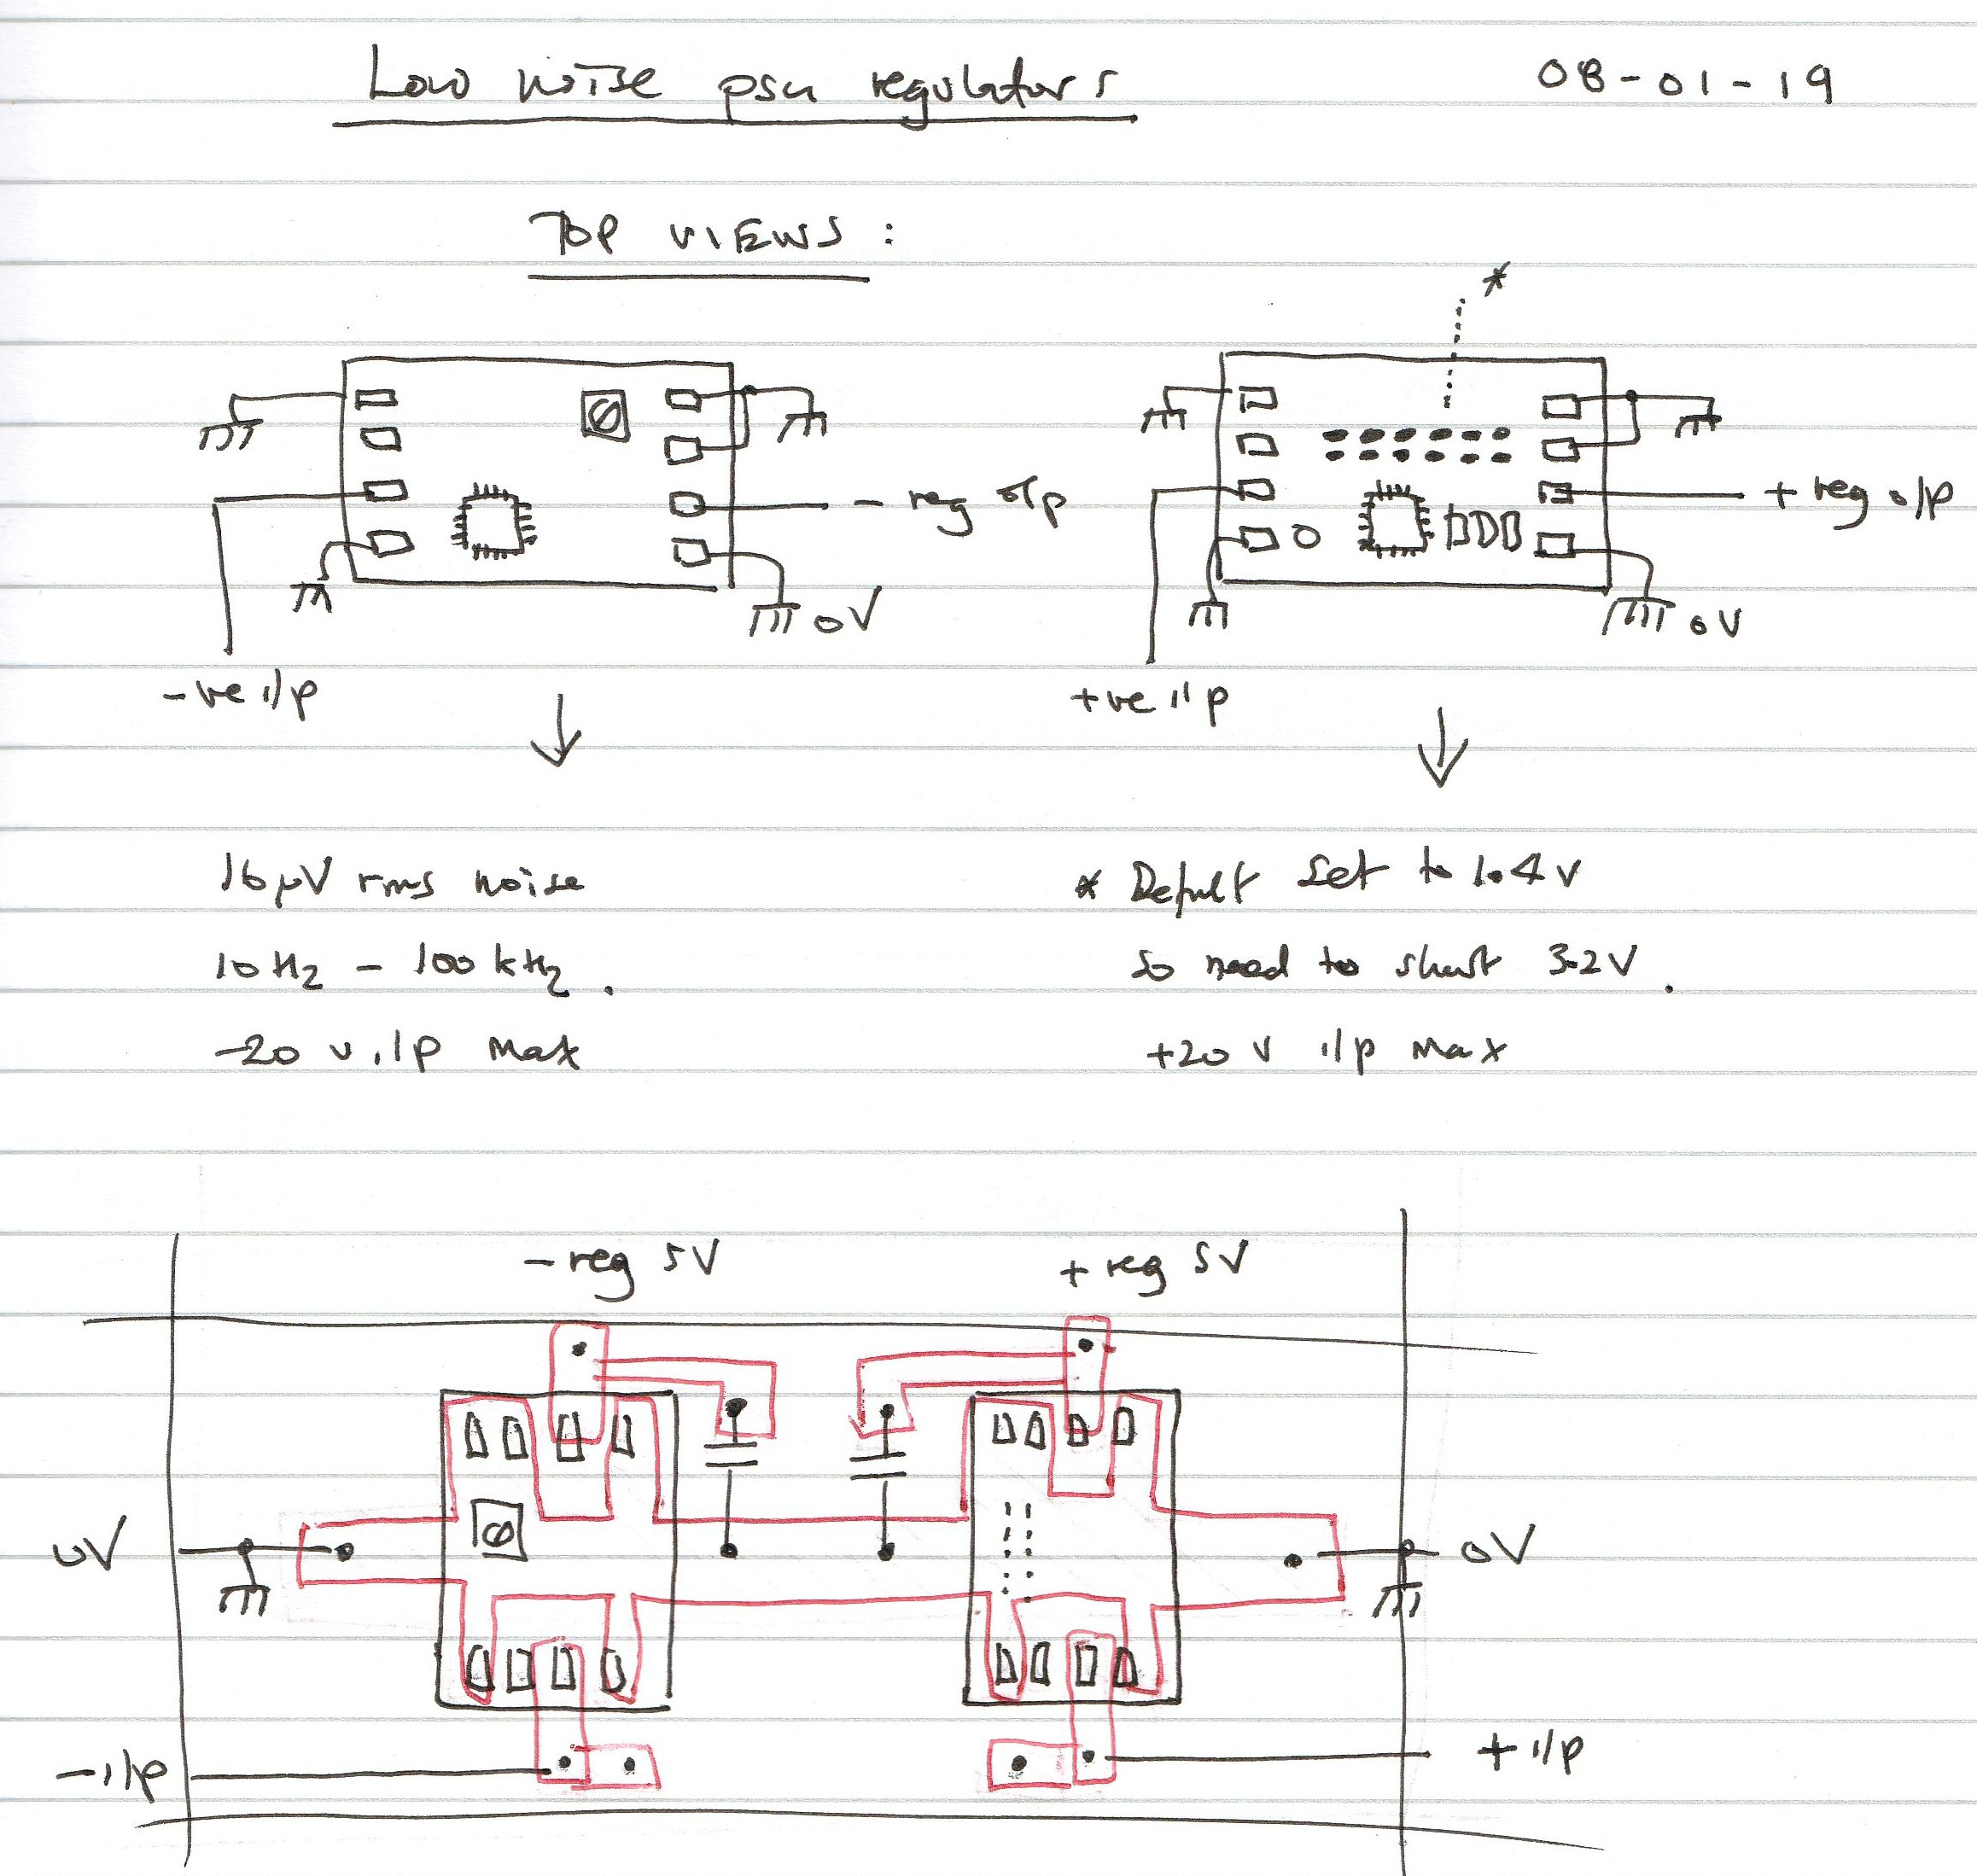 Low noise psu regulators 08-01-19
TOP VIEWS :
*
- reg o/p
+ reg o/p
0V
0V
-ve i/p
+ve i/p
16µV rms noise
10Hz - 100kHz.
-20 v i/p max
* Default set to 1.4v
so need to short 3.2V.
+20 v i/p max
- reg 5V
+ reg 5V
0V
0V
- i/p
+ i/p